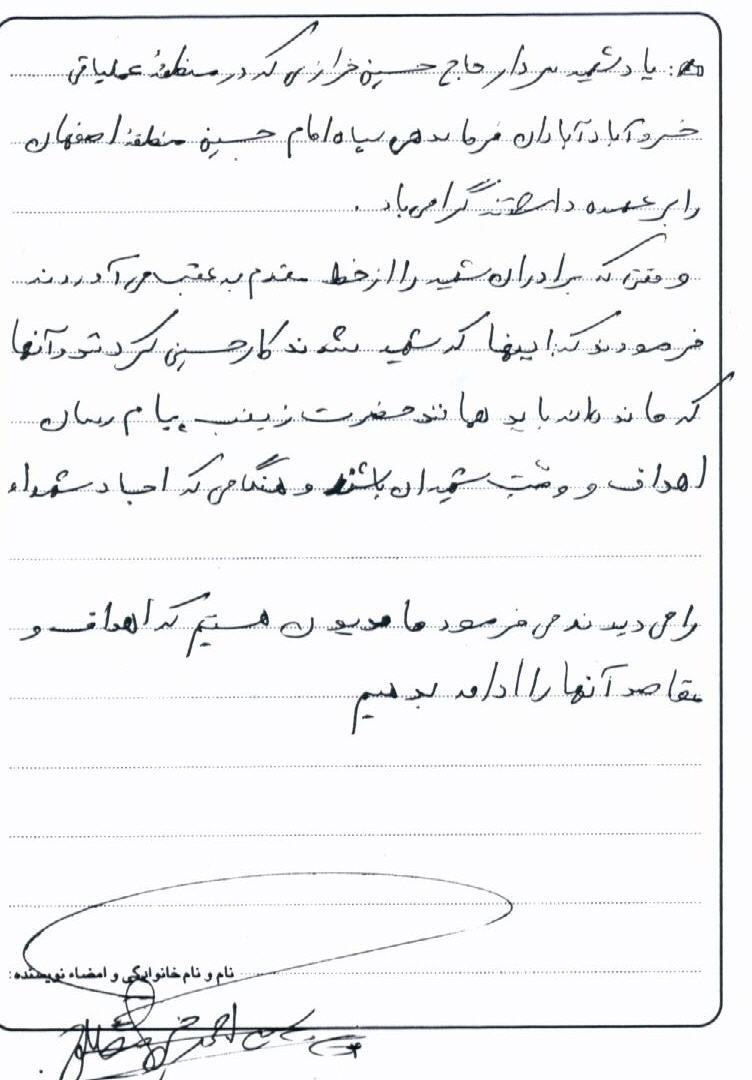 یاد شهید سردار حاج حسین خرازی که در منطقهٔ عملیاتی
خسروآباد آبادان فرماندهی سپاه امام حسین منطقهٔ اصفهان
را بر عهده داشتند گرامی باد.
وقتی که برادران شهید را از خط مقدم به عقب می‌آوردند
فرمودند که اینها که شهید شدند کار حسینی کردند و آنها
که مانده‌اند باید همانند حضرت زینب پیام رسان
اهداف و وصیت شهیدان باشند و هنگامی که اجساد شهداء
را می‌دیدند می‌فرمود ما مدیون هستیم که اهداف و
مقاصد آنها را ادامه بدهیم
نام و نام خانوادگی و امضاء نویسنده: